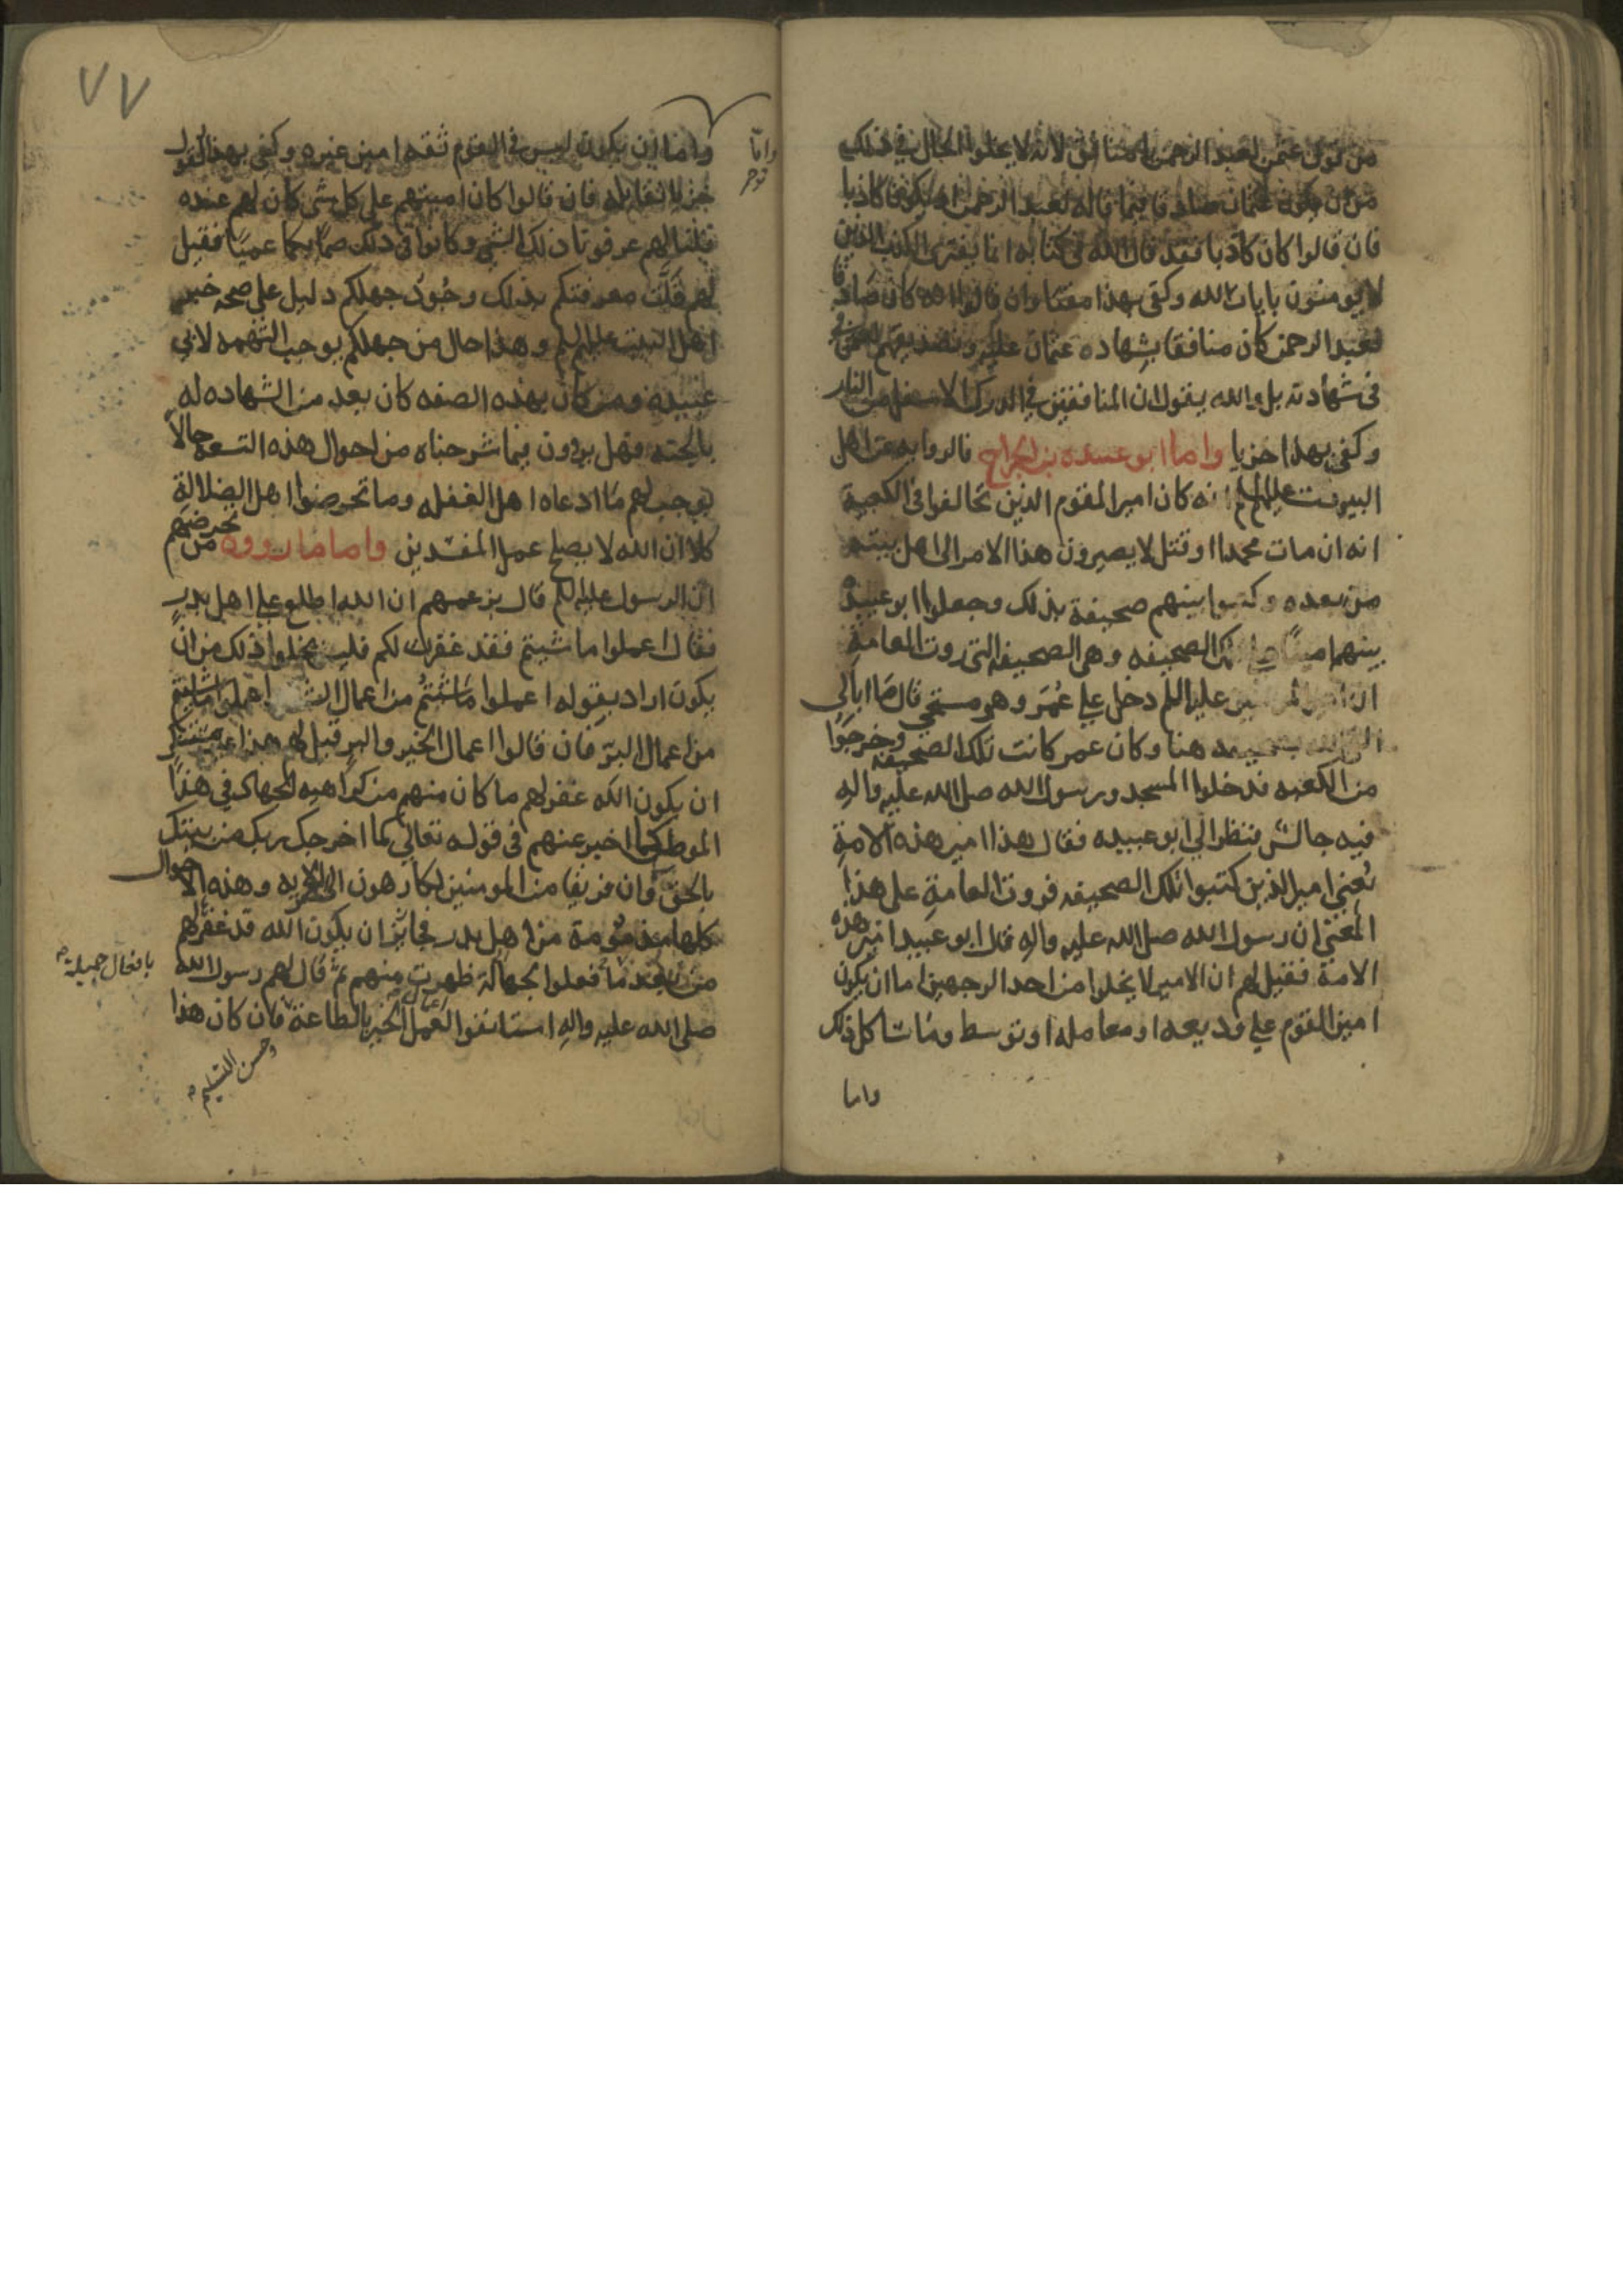 من قول عثمن لعبد الرحمن يا منافق لانه لا يخلوا الحال في ذلك
من ان يكون عثمان صادقا فيما قاله لعبد الرحمن او يكون كاذبا
فان قالوا كان كاذبا فقد قال الله في كتابه انما يفترى الكذب الذين
لا يومنون بايات الله وكفى بهذا مقتا وان قالوا انه كان صادقا
فعبد الرحمن كان منافقا بشهاده عثمان عليه
في شهادته بل والله يقول ان المنافقين في الدرك الاسفل من النار
وكفى بهذا خزيا واما ابو عبيده بن الجراح فالروايه عن اهل
البيت عليهم انه كان امير القوم الذين تحالفوا في الكعبة
انه ان مات محمدا او قتل لا يصيرون هذا الامر الى اهل بيته
من بعده وكتبوا بينهم صحيفة بذلك وجعلوا ابو عبيدة
بينهم امينا على تلك الصحيفه وهى الصحيفه التى روت العامة
ان امير المومنين عليه السلم دخل على عُمَر وهو مسجي قال ما ابالي
الله هنا وكان عمر كانت تلك الصحيفه وخرجوا
من الكعبه فدخلوا المسجد ورسول الله صلى الله عليه واله
فيه جالس فنظر الى ابو عبيده فقال هذا امين هذه الامة
يعني امين الذين كتبوا تلك الصحيفه فروت العامة على هذا
المعنى ان رسول الله صلى الله عليه واله قال ابو عبيدا امين هذه
الامة فقيل لهم ان الامين لا يخلوا من احد الوجهين اما ان يكون
امين القوم على وديعه او معامله او توسط وما شاكل ذلك
واما
٧٧
واما
واما ان يكون ليس في القوم ثقه امين غيره وكفى بهذا القول
خزيا لقايله فان قالوا كان امينهم على كل شى كان لهم عنده
قلنا لهم عرفونا ذلك الشي وكانوا في ذلك صما بكما عميا فقيل
لهم قلت معرفتكم بذلك وجهلكم دليل على صحه خبر
اهل البيت عليهم السلم وهذا حال من جهلكم يوجب التهمه لابي
عبيده ومن كان بهذه الصفه كان بعد من الشهاده له
بالجنه فهل يرون فيما شرحناه من احوال هذه التسعه حالاً
يوجب لهم ما ادعاه اهل الغفله وما تخرصوا اهل الضلالة
كلا ان الله لا يصلح عمل المفسدين واما ما رووه من تخرصهم
ان الرسول عليه السلم قال بزعمهم ان الله اطلع على اهل بدر
فقال اعملوا ما شيتم فقد غفرت لكم فليس يخلوا ذلك من ان
يكون اراد بقوله اعملوا ما شئتم من اعمال الشر اعملوا ما شيتم
من اعمال البر فان قالوا اعمال الخير والبر قيل لهم هذا غير مستنكر
ان يكون الله غفر لهم ما كان منهم من كراهيه الجهاد في هذا
الموطن كما اخبر عنهم في قوله تعالى كما اخرجك ربك من بيتك
بالحق وان فريقا من المومنين لكارهون الى اخر الايه وهذه الاحوال
كلها مذمومة من اهل بدر فجايز ان يكون الله قد غفر لهم
من بعد ما فعلوا بجهالة ظهرت منهم ثم قال لهم رسول الله
بافعال جميلة
صلى الله عليه واله استانفوا العمل اعمال الخير بالطاعة فان كان هذا
وحسن التسليم